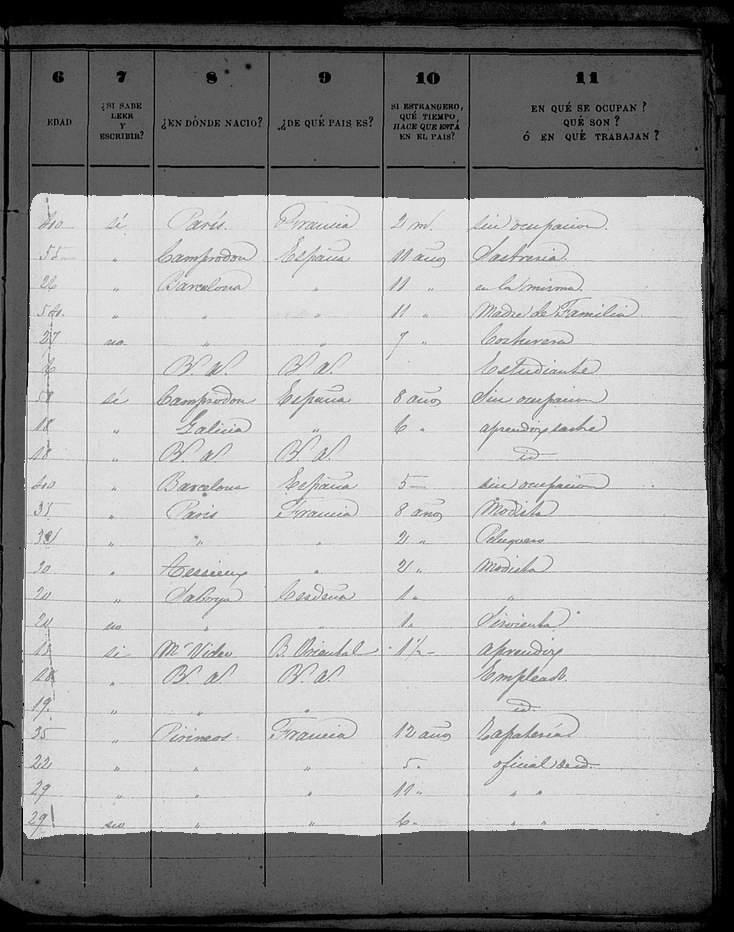 6 7 8 9 10 11
EDAD ¿SI SABE LEER Y ESCRIBIR? ¿EN DÓNDE NACIO? ¿DE QUÉ PAIS ES? SI ESTRANGERO, QUÉ TIEMPO HACE QUE ESTÁ EN EL PAIS? EN QUÉ SE OCUPAN? QUÉ SON? Ó EN QUÉ TRABAJAN?
40 sí París. Francia 2 m. sin ocupacion.
55 " Camprodon España 11 años Sastreria.
26 " Barcelona " 11 " en la misma.
" " " 11 " Madre de Familia
27 no " " 7 " Costurera
B. A. B. A. Estudiante
58 sí Camprodon España 8 años Sin ocupacion
18 " Galicia " 6 " aprendiz sastre
18 " B. A. B. A. id
40 " Barcelona España 5 — sin ocupacion
35 " París Francia 8 años Modista
" " " 2 " Peluquero
20 " " 2 " Modista
20 " Saboya Cerdeña 1 " "
20 no " " 1 " Sirvienta
sí Mte Video B. Oriental 1½ — aprendiz
18 " B. A. B. A. Empleado.
19. " " " id.
35 " Pirineos Francia 12 años Zapatería
22 " " " 5 " oficial de id.
29 " " " 11 " " "
29 no " " 6 " " "